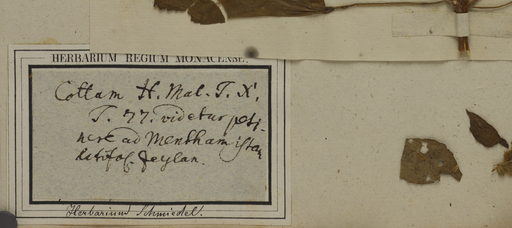 HERBARIUM REGIUM MONACENSE.
Cottam H. Mal. T. X,
T. 77. videtur perti-
nere ad Mentham istam
latifol. Zeylan.
Herbarium Schmiedel.